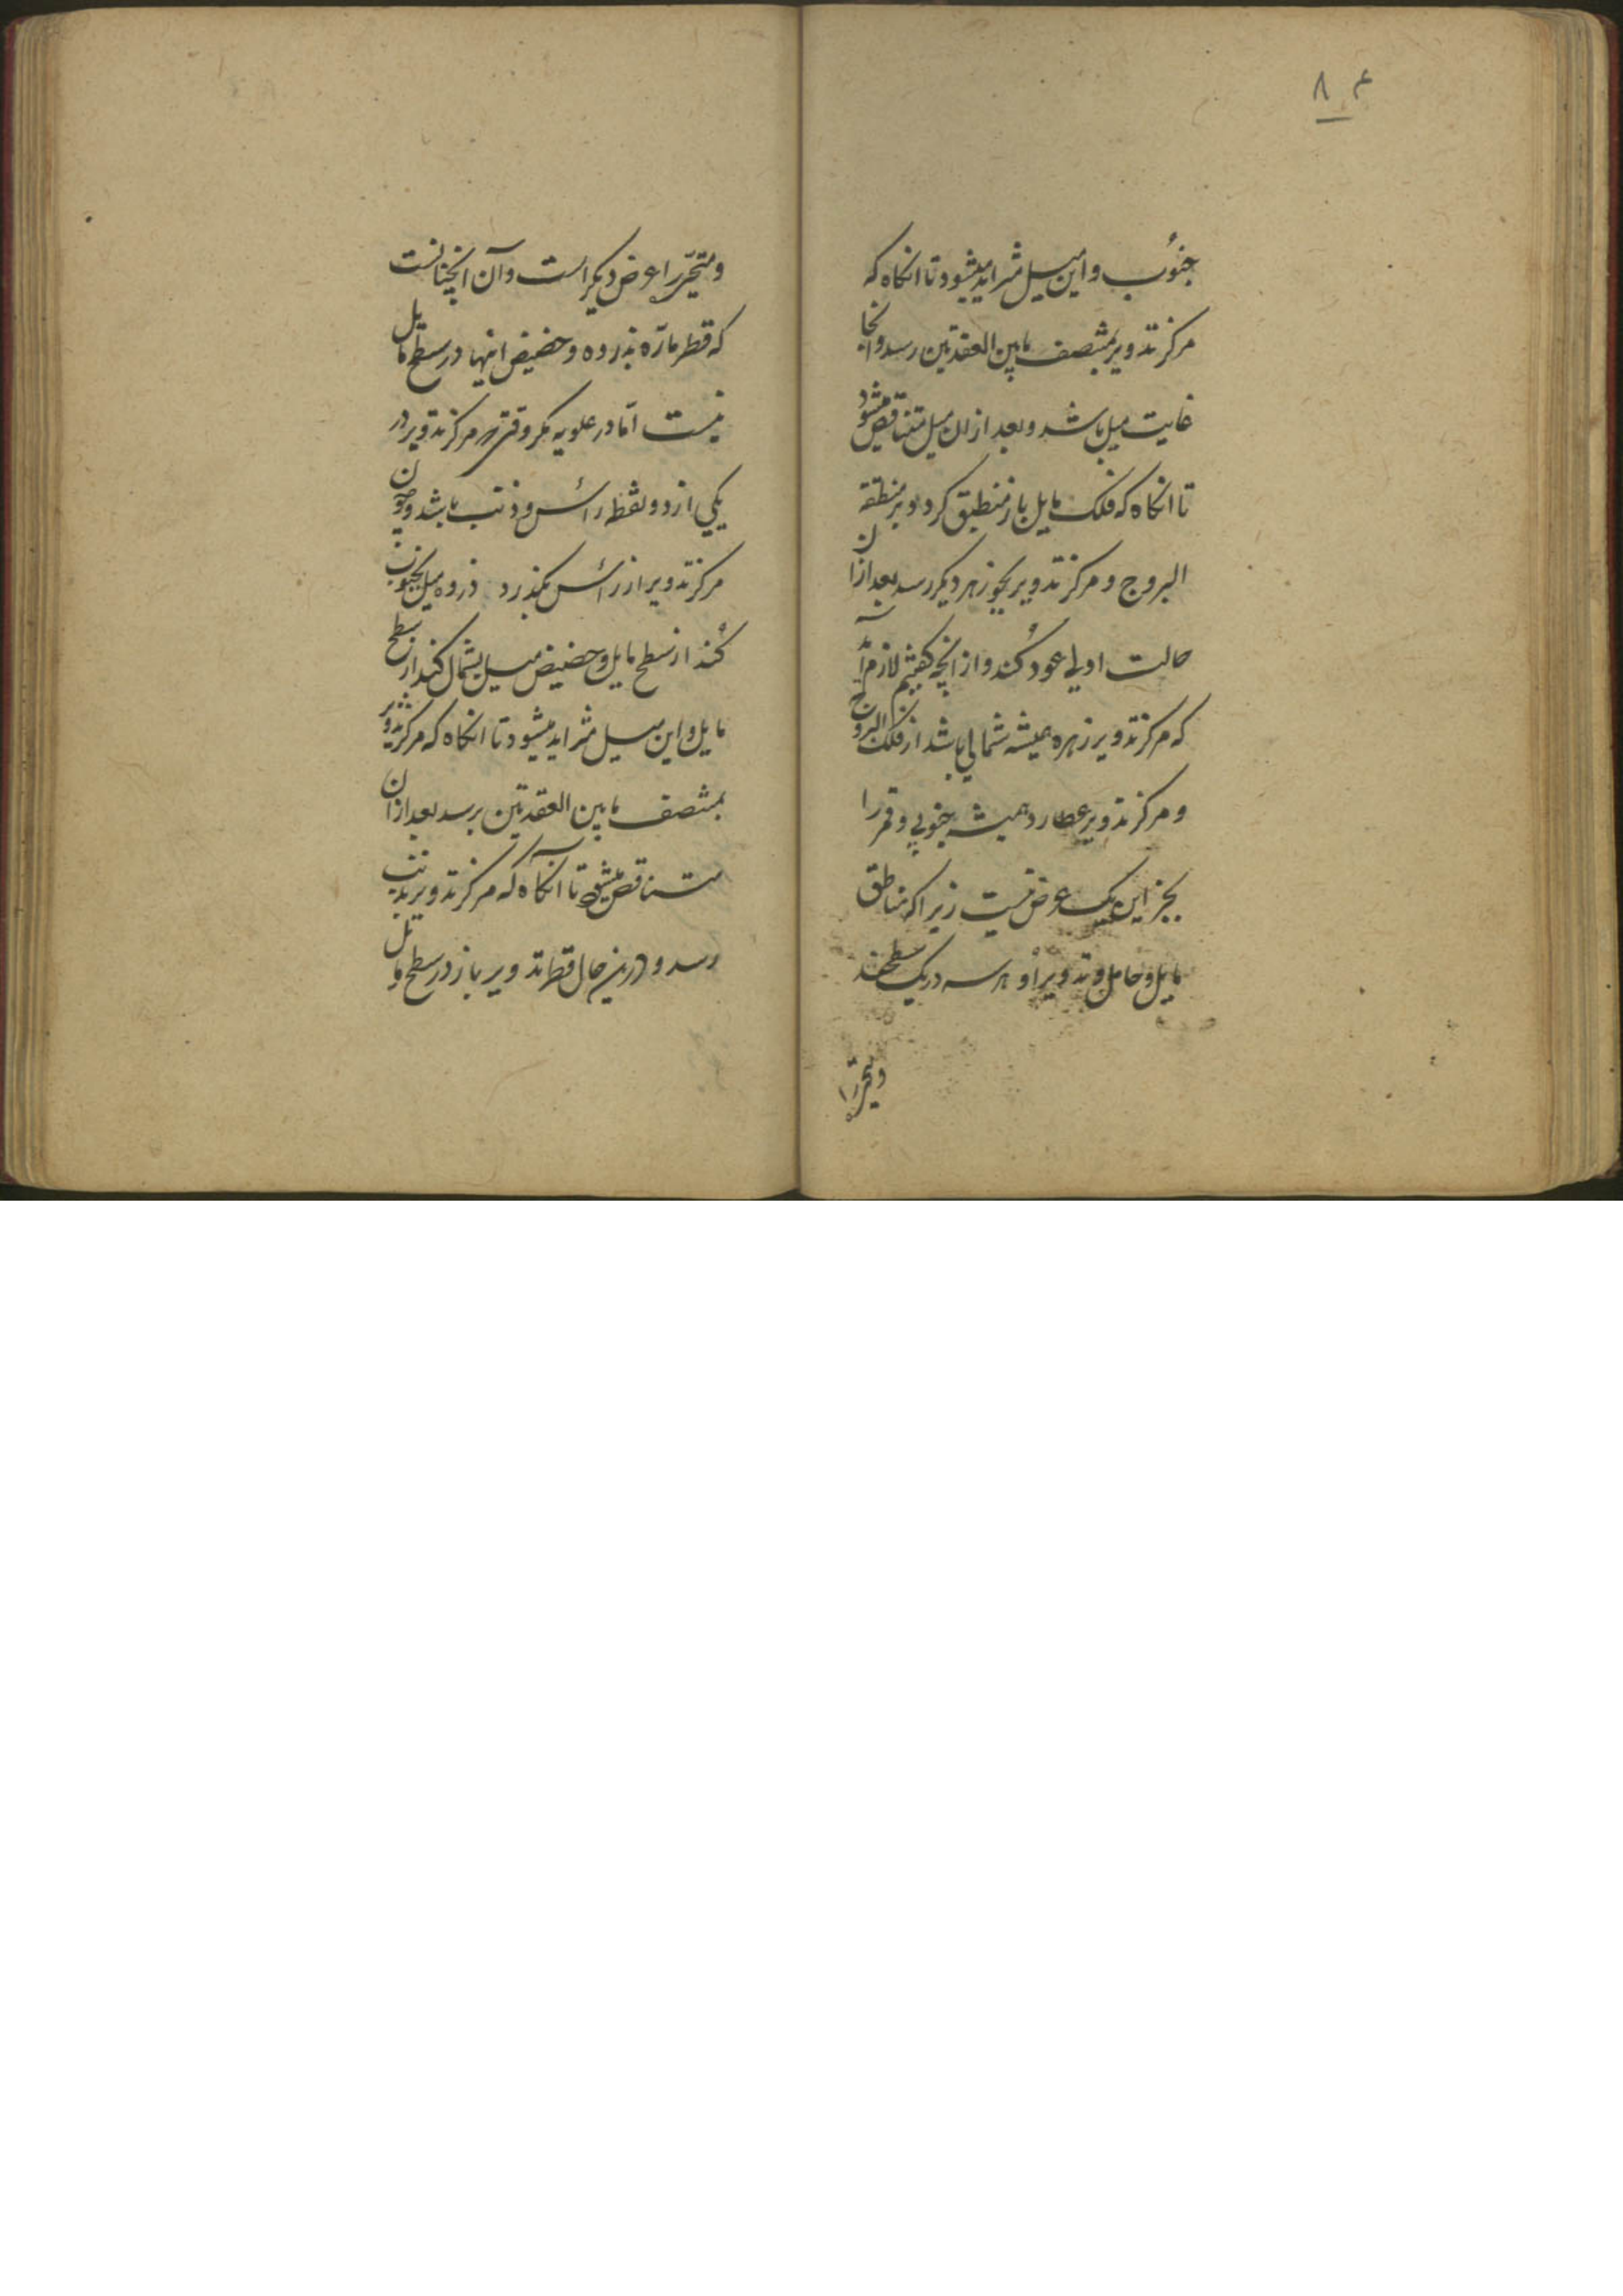 ۸۴
جنوب و این میل متزاید میشود تا انکاه که
مرکز تدویر بمنتصف مابین العقدتین رسد و انجا
غایت میل باشد و بعد ازان میل متناقص میشود
تا انکاه که فلک مایل باز منطبق کردد بر منطقة
البروج و مرکز تدویر بجوزهر دیکر رسد بعد ازان
حالت اولی عود کند و از انچه کفتیم لازم آید
که مرکز تدویر زهره همیشه شمالی باشد از فلک البروج
و مرکز تدویر عطارد همیشه جنوبی و قمر را
بجز این یک عرض نیست زیرا که مناطق
مایل و حامل و تدویر او هر سه در یک سطحند
ومتحیّره را
ومتحیّره را عرض دیکر است و آن انچنانست
که قطر مارّه بذروه و حضیض اینها در سطح مایل
نیست امّا در علویه مکر وقتی که مرکز تدویر در
یکی از دو نقطه رأس و ذنب باشد و چون
مرکز تدویر از رأس بکذرد ذروه میل بجنوب
کند از سطح مایل و حضیض میل بشمال کند از سطح
مایل و این میل متزاید میشود تا انکاه که مرکز تدویر
بمنتصف مابین العقدتین برسد بعد ازان
متناقص میشود تا آنکاه که مرکز تدویر بذنب
رسد و درین حال قطر تدویر باز در سطح مایل